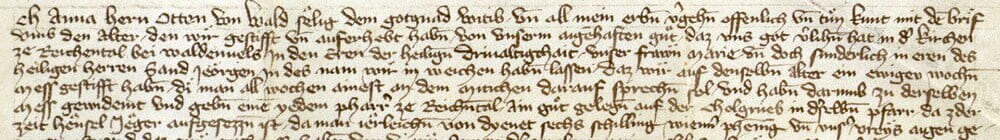 Ch Anna hern Otten von Wald selig dem got gnad witib vn all mein erbn vergehn offenlich vn tun kunt mit dem brif
vmb den Alter den wir gestifft vn auferhebt habn von vnserm aygenhaften gut daz vns got verlihn hat in der kirchen
ze Reichental bei waldenuels in den Eren der heilign driualtigchait vnser frawn Marie vn doch sunderlich in eren des
heiligen herren Sand Jeorgen in des nam wir in weichen habn lassen Daz wir auf denselbn Alter ein ewigew wochn
mess gestifft habn di man all wochen ainest an dem mitichen darauf sprechn sol vnd habn darumb zu derselben
mess gewidemt vnd gebn eine yedem pharrer ze Reichntal Ain gut gelegn auf der in derselbn pfarr da zder
zeit hensel Jeger aufgesezzn ist da man ierleichn von dyenet sechs schilling wienner phening vn vnser vreys aygen ge